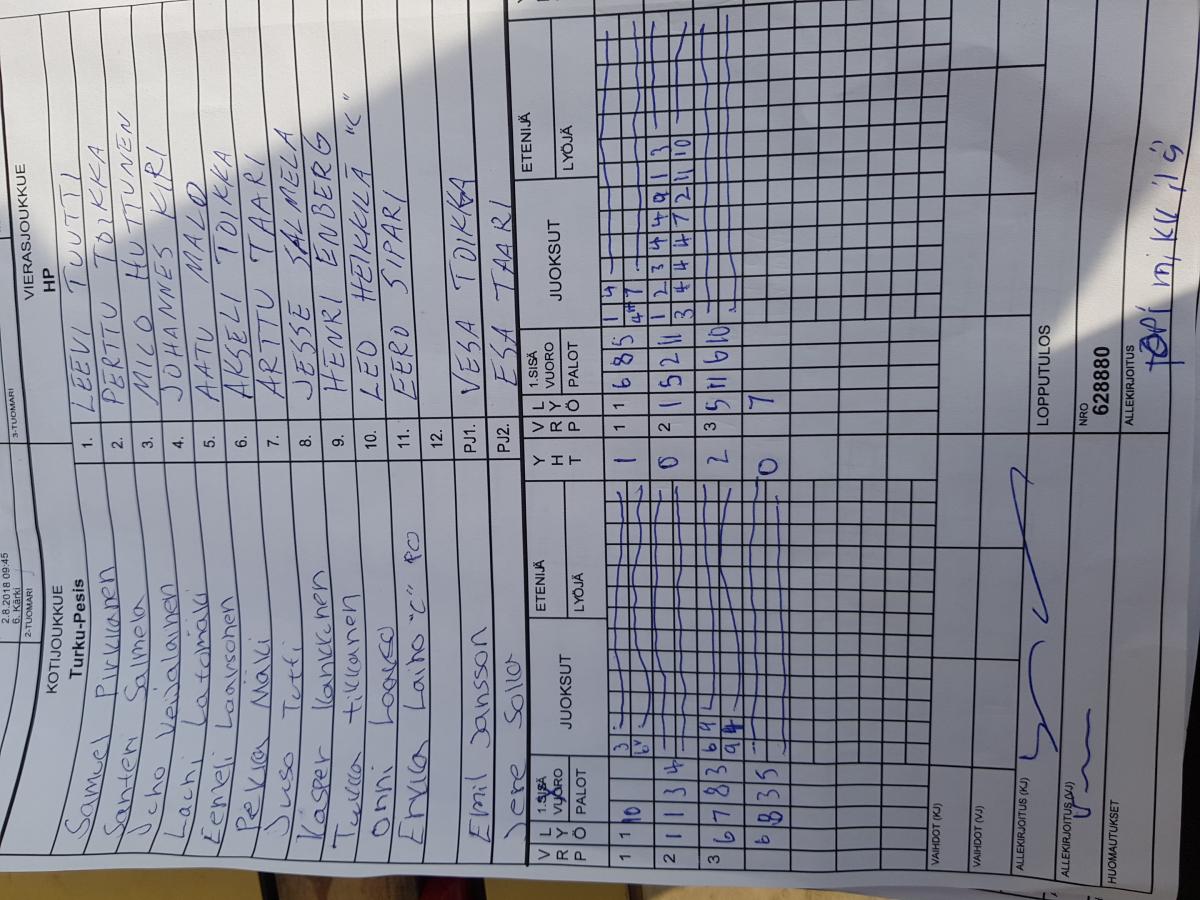 2.8.2018 09:45
6. Kärki
2-TUOMARI
3-TUOMARI
KOTIJOUKKUE
VIERASJOUKKUE
Turku-Pesis
HP
Samuel Pirkkanen 1. LEEVI TUUTTI
Santeri Salmela 2. PERTTU TOIKKA
Juho Veijalainen 3. MILO HUTTUNEN
Lachi Latomäki 4. JOHANNES KIRI
Eemeli Laaksonen 5. AATU MALO
Pekka Mäki 6. AKSELI TOIKKA
Juuso Tutti 7. ARTTU TAARI
Kasper Kankkunen 8. JESSE SALMELA
Tukka Tikkanen 9. HENRI ENBERG
Onni 10. LEO HEIKKILÄ "C"
Erkka Laiho "C" PO 11. EERO SIPARI
12.
Emil Jansson PJ1. VESA TOIKKA
Jere Solla PJ2. ESA TAARI
VRP LYÖ 1.SISÄ VUORO PALOT JUOKSUT ETENIJÄ LYÖJÄ YHT VRP LYÖ 1.SISÄ VUORO PALOT JUOKSUT ETENIJÄ LYÖJÄ
1 10 3 1 1 1 6 8 5 1 4
6 4 7
2 1 1 3 4 0 2 1 5 2 11 1 2 3 4 4 9 1 3
3 4 4 4 7 2 11 10
3 6 7 8 3 6 9 2 3 5 11 6 10
9 4
6 8 3 5 0 7
VAIHDOT (KJ)
VAIHDOT (VJ)
LOPPUTULOS
ALLEKIRJOITUS (KJ)
ALLEKIRJOITUS (VJ)
NRO
628880
HUOMAUTUKSET
ALLEKIRJOITUS